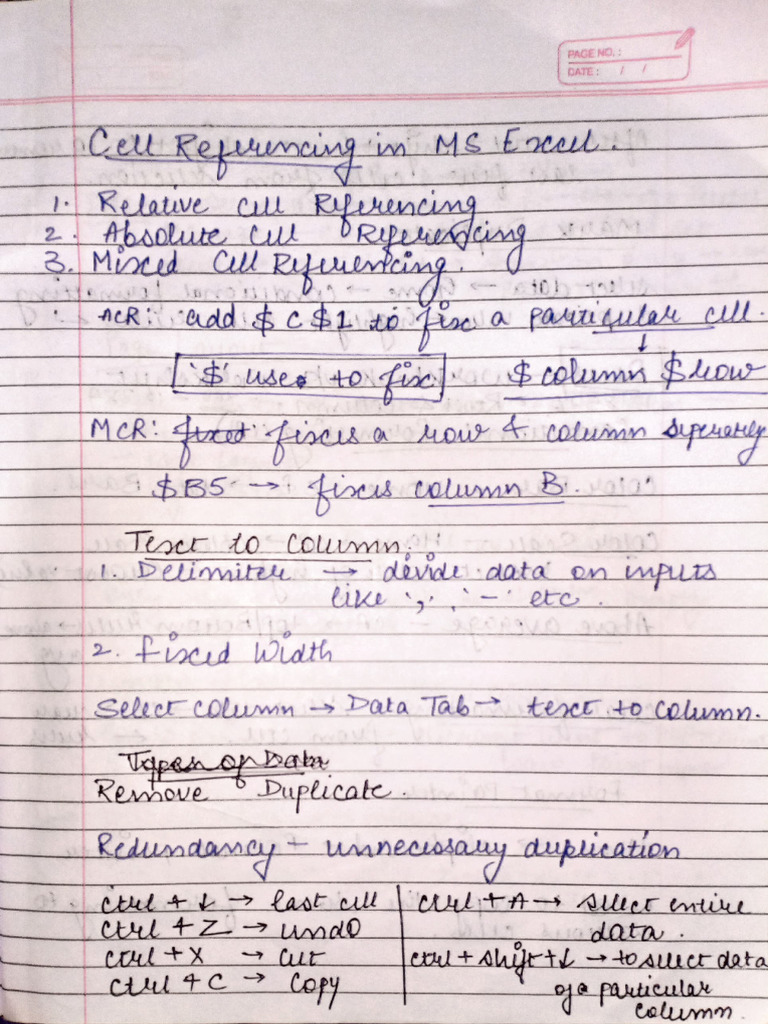 PAGE NO. :
DATE : / /
Cell Referencing in MS Excel.
1. Relative cell Referencing
2. Absolute cell Referencing
3. Mixed Cell Referencing.
ACR: add $ C $ 1 to fix a particular cell.
↓
'$' use to fix
$ column $ row
MCR: fixed fixes a row & column seperately
$B5 → fixes column B.
Text to column.
1. Delimiter → divide data on inputs
like ',' '-' etc.
2. Fixed Width
Select column → Data Tab → text to column.
Types of Data
Remove Duplicate.
Redundancy - unnecessary duplication
ctrl + ↓ → last cell
ctrl + Z → undo
ctrl + X → cut
ctrl + C → copy
ctrl + A → select entire
data.
ctrl + shift + ↓ → to select data
of a particular
column.